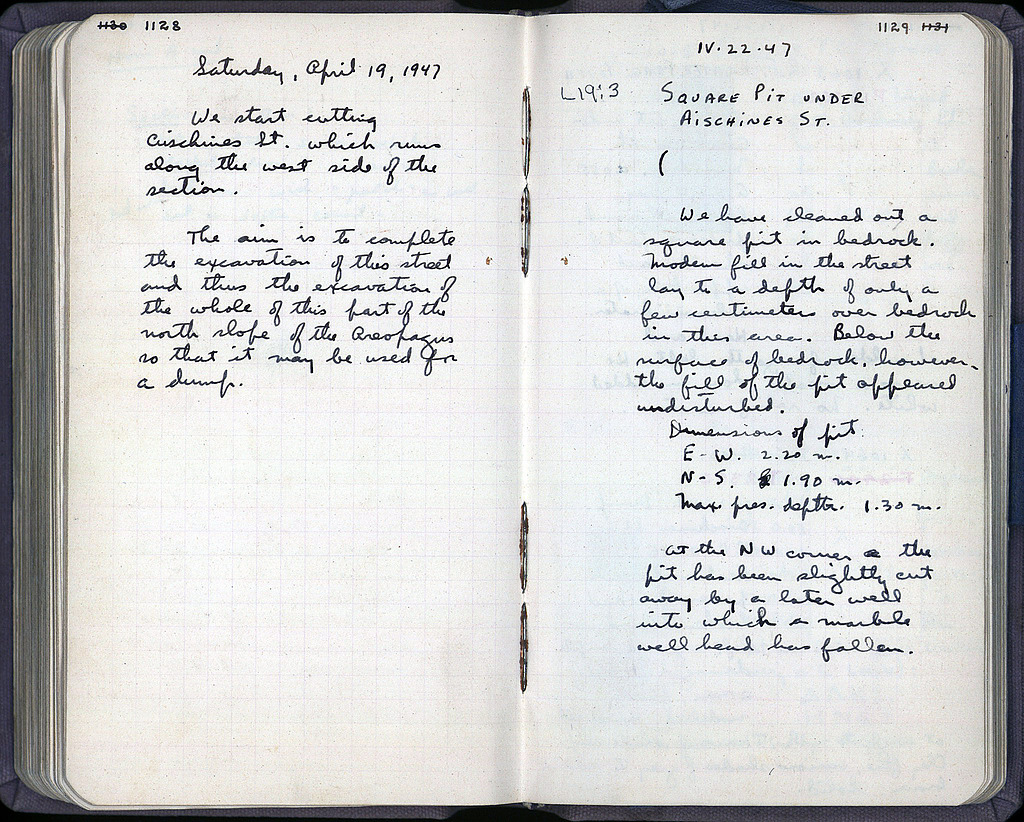 1130 1128
Saturday, April 19, 1947
We start cutting
Aischines St. which runs
along the west side of the
section.
The aim is to complete
the excavation of this street
and thus the excavation of
the whole of this part of the
north slope of the Areopagus
so that it may be used for
a dump.
1129 1131
IV.22.47
L19:3 SQUARE PIT UNDER
AISCHINES ST.
(
We have cleaned out a
square pit in bedrock.
Modern fill in the street
lay to a depth of only a
few centimeters over bedrock
in this area. Below the
surface of bedrock, however,
the fill of the pit appeared
undisturbed.
Dimensions of pit.
E-W. 2.20 m.
N-S. 1.90 m.
Max. pres. depth. 1.30 m.
At the NW corner the
pit has been slightly cut
away by a later well
into which a marble
well head has fallen.